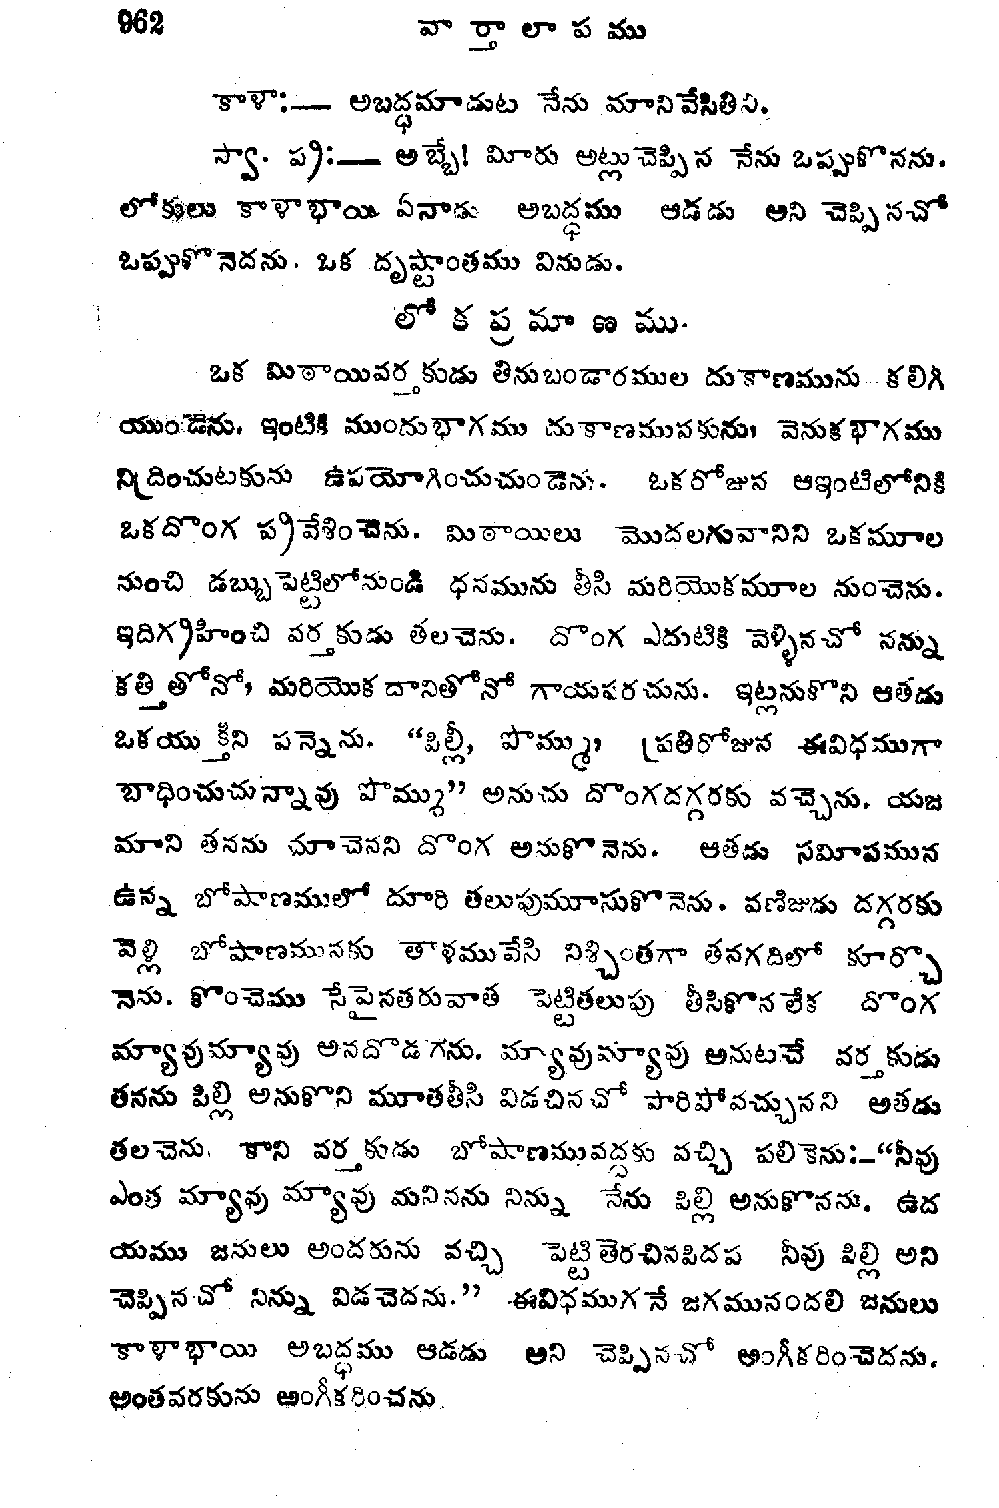 962 వార్తాలాపము
కాళా:— అబద్ధమాడుట నేను మానివేసితిని.
స్వా. ప్రి:— అబ్బే! మీరు అట్లుచెప్పిన నేను ఒప్పుకొనను.
లోకులు కాళాభాయి ఏనాడు అబద్ధము ఆడడు అని చెప్పినచో
ఒప్పుకొనెదను. ఒక దృష్టాంతము వినుడు.
లోకప్రమాణము.
ఒక మిఠాయివర్తకుడు తినుబండారముల దుకాణమును కలిగి
యుండెను. ఇంటికి ముందుభాగము దుకాణమువకును, వెనుకభాగము
నిద్రించుటకును ఉపయోగించుచుండెను. ఒకరోజున ఆఇంటిలోనికి
ఒకదొంగ ప్రవేశించెను. మిఠాయిలు మొదలగువానిని ఒకమూల
నుంచి డబ్బుపెట్టిలోనుండి ధనమును తీసి మరియొకమూల నుంచెను.
ఇదిగ్రహించి వర్తకుడు తలచెను. దొంగ ఎదుటికి వెళ్ళినచో నన్ను
కత్తితోనో, మరియొకదానితోనో గాయపరచును. ఇట్లనుకొని ఆతడు
ఒకయుక్తిని పన్నెను. “పిల్లీ, పొమ్ము, ప్రతిరోజున ఈవిధముగా
బాధించుచున్నావు పొమ్ము” అనుచు దొంగదగ్గరకు వచ్చెను. యజ
మాని తనను చూచెనని దొంగ అనుకొనెను. ఆతడు సమీపమున
ఉన్న బోషాణములో దూరి తలుపుమూసుకొనెను. వణిజుడు దగ్గరకు
వెళ్లి బోషాణమునకు తాళమువేసి నిశ్చింతగా తనగదిలో కూర్చొ
నెను. కొంచెము సేపైనతరువాత పెట్టితలుపు తీసికొనలేక దొంగ
మ్యావుమ్యావు అనదొడగను. మ్యావుమ్యావు అనుటచే వర్తకుడు
తనను పిల్లి అనుకొని మూతతీసి విడచినచో పారిపోవచ్చునని అతడు
తలచెను. కాని వర్తకుడు బోషాణమువద్దకు వచ్చి పలికెను:—“నీవు
ఎంత మ్యావు మ్యావు మనినను నిన్ను నేను పిల్లి అనుకొనను. ఉద
యము జనులు అందరును వచ్చి పెట్టితెరచినపిదప నీవు పిల్లి అని
చెప్పినచో నిన్ను విడచెదను.” ఈవిధముగనే జగమునందలి జనులు
కాళాభాయి అబద్ధము ఆడడు అని చెప్పినచో అంగీకరించెదను.
అంతవరకును అంగీకరించను